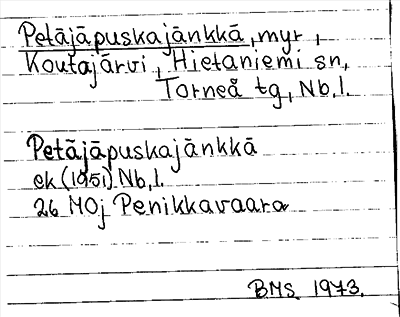 Petäjäpuskajänkkä, myr,
Koutajärvi, Hietaniemi sn,
Torneå tg, Nb, l.
Petäjäpuskajänkkä
ek (1951) Nb, l.
26 MOj Penikkavaara
BMS 1973.